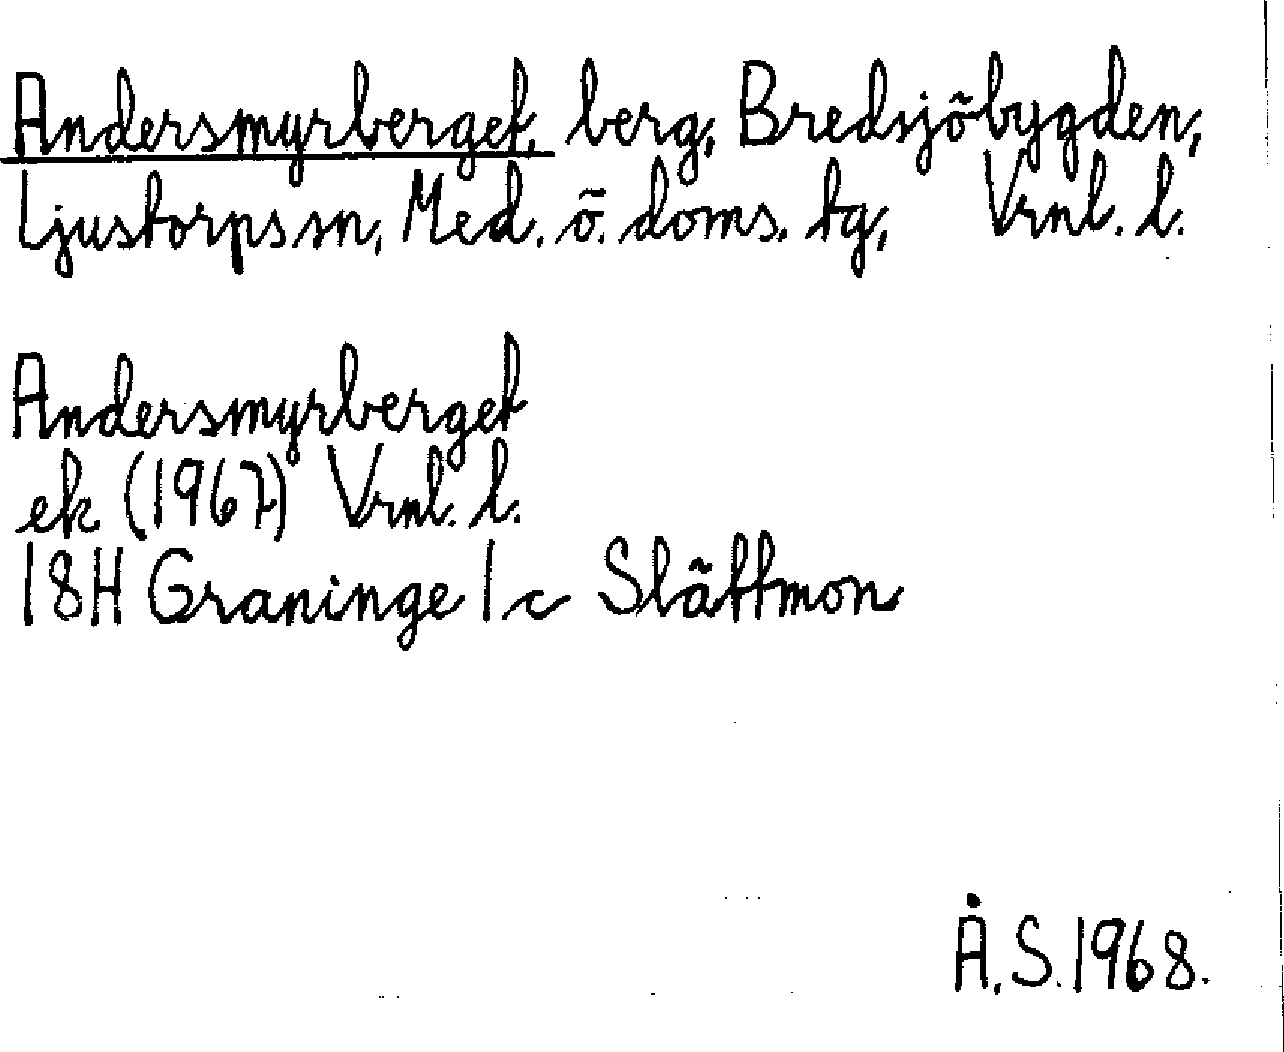 Andersmyrberget, berg, Bredsjöbygden,
Ljustorps sn, Med. ö. doms. tg, Vrnl. l.
Andersmyrberget
ek (1967) Vrnl. l.
18H Graninge 1 c Slättmon
Å.S. 1968.